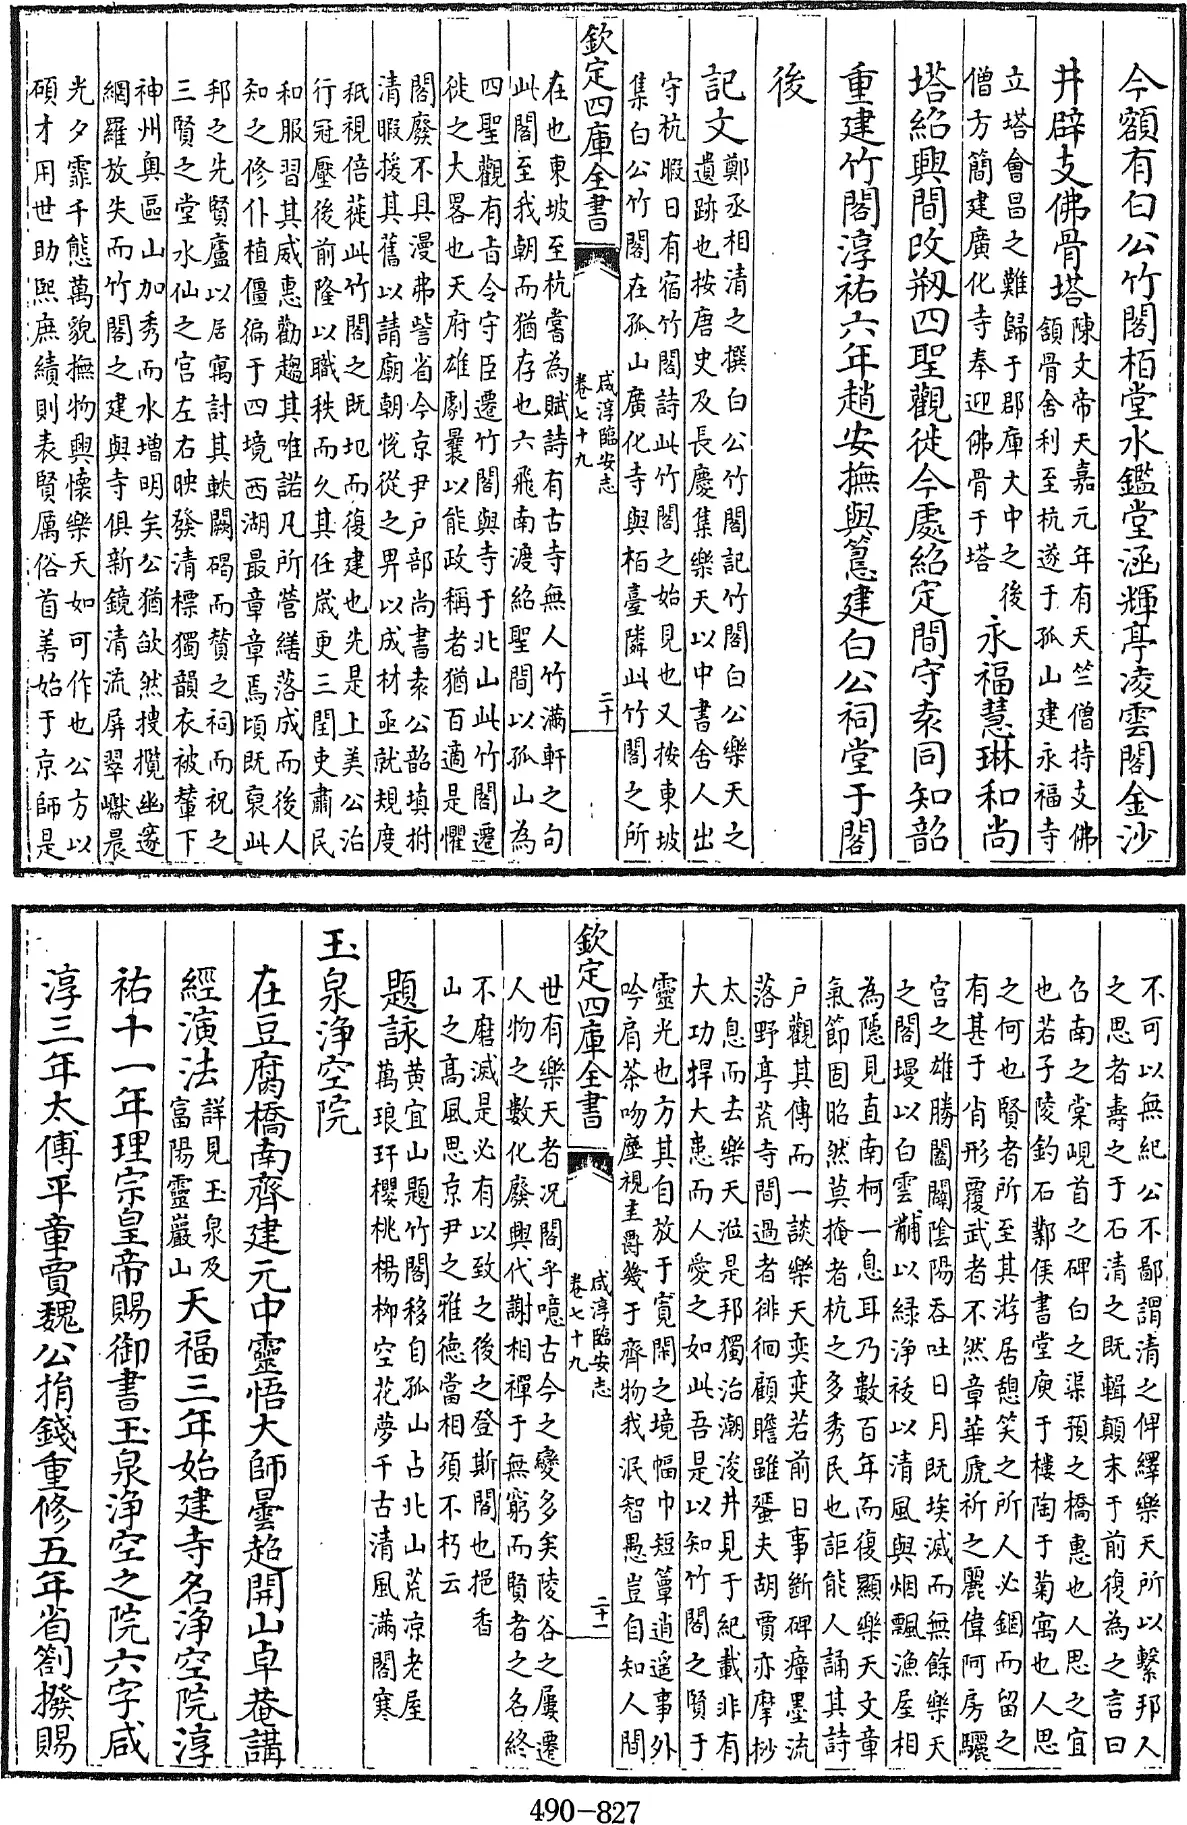 今額有白公竹閣栢堂水鑑堂涵輝亭凌雲閣金沙
井辟支佛骨塔陳文帝天嘉元年有天竺僧持支佛
頷骨舍利至杭遂于孤山建永福寺
立塔會昌之難歸于郡庫大中之後
僧方簡建廣化寺奉迎佛骨于塔
永福慧琳和尚
塔紹興間改剏四聖觀徙今處紹定間守袁同知韶
重建竹閣淳祐六年趙安撫與𥲅建白公祠堂于閣
後
記文鄭丞相清之撰白公竹閣記竹閣白公樂天之
遺跡也按唐史及長慶集樂天以中書舍人出
守杭暇日有宿竹閣詩此竹閣之始見也又按東坡
集白公竹閣在孤山廣化寺與栢臺隣此竹閣之所
欽定四庫全書
咸淳臨安志
卷七十九
二十
在也東坡至杭嘗為賦詩有古寺無人竹滿軒之句
此閣至我朝而猶存也六飛南渡紹聖間以孤山為
四聖觀有㫖令守臣遷竹閣與寺于北山此竹閣遷
徙之大畧也天府雄劇曩以能政稱者猶百適是懼
閣廢不具漫弗訾省今京尹戶部尚書袁公韶填拊
清暇援其舊以請廟朝恱從之畀以成材亟就規度
秖視倍蓰此竹閣之既圮而復建也先是上美公治
行冠壓後前隆以職秩而久其任嵗更三閏吏肅民
和服習其威惠勸趨其唯諾凡所營繕落成而後人
知之修仆植僵徧于四境西湖最章章焉頃既裒此
邦之先賢廬以居寓討其軼闕碣而贊之祠而祝之
三賢之堂水仙之宫左右映發清標獨韻衣被輦下
神州奥區山加秀而水增明矣公猶欿然捜攬幽邃
網羅放失而竹閣之建與寺俱新鏡清流屏翠巘晨
光夕霏千態萬貌撫物興懷樂天如可作也公方以
碩才用世助熙庶績則表賢厲俗首善始于京師是
不可以無紀公不鄙謂清之俾繹樂天所以繫邦人
之思者壽之于石清之既輯顛末于前復為之言曰
召南之棠峴首之碑白之渠預之橋惠也人思之宜
也若子陵釣石鄴侯書堂庾于樓陶于菊寓也人思
之何也賢者所至其游居憩笑之所人必錮而留之
有甚于肖形覆武者不然章華虒祈之麗偉阿房驪
宫之雄勝闔闢陰陽吞吐日月既埃滅而無餘樂天
之閣墁以白雲黼以緑淨祓以清風與烟飄漁屋相
為隱見直南柯一息耳乃數百年而復顯樂天文章
氣節固昭然莫掩者杭之多秀民也詎能人誦其詩
戶觀其傳而一談樂天奕奕若前日事斷碑瘴墨流
落野亭荒寺間過者徘徊顧瞻雖蜑夫胡賈亦摩挲
太息而去樂天涖是邦獨治潮浚井見于紀載非有
大功捍大患而人愛之如此吾是以知竹閣之賢于
靈光也方其自放于寛閑之境幅巾短簟逍遥事外
吟肩茶吻塵視圭爵幾于齊物我泯智愚豈自知人間
欽定四庫全書
咸淳臨安志
卷七十九
二十一
世有樂天者况閣乎噫古今之變多矣陵谷之屢遷
人物之數化廢興代謝相禪于無窮而賢者之名終
不磨滅是必有以致之後之登斯閣也挹香
山之髙風思京尹之雅德當相須不朽云
題詠黄宜山題竹閣移自孤山占北山荒凉老屋
萬琅玕櫻桃楊栁空花夢千古清風滿閣寒
玉泉淨空院
在豆腐橋南齊建元中靈悟大師曇超開山卓菴講
經演法詳見玉泉及
富陽靈巖山
天福三年始建寺名淨空院淳
祐十一年理宗皇帝賜御書玉泉淨空之院六字咸
淳三年太傅平章賈魏公捐錢重修五年省劄撥賜
490-827